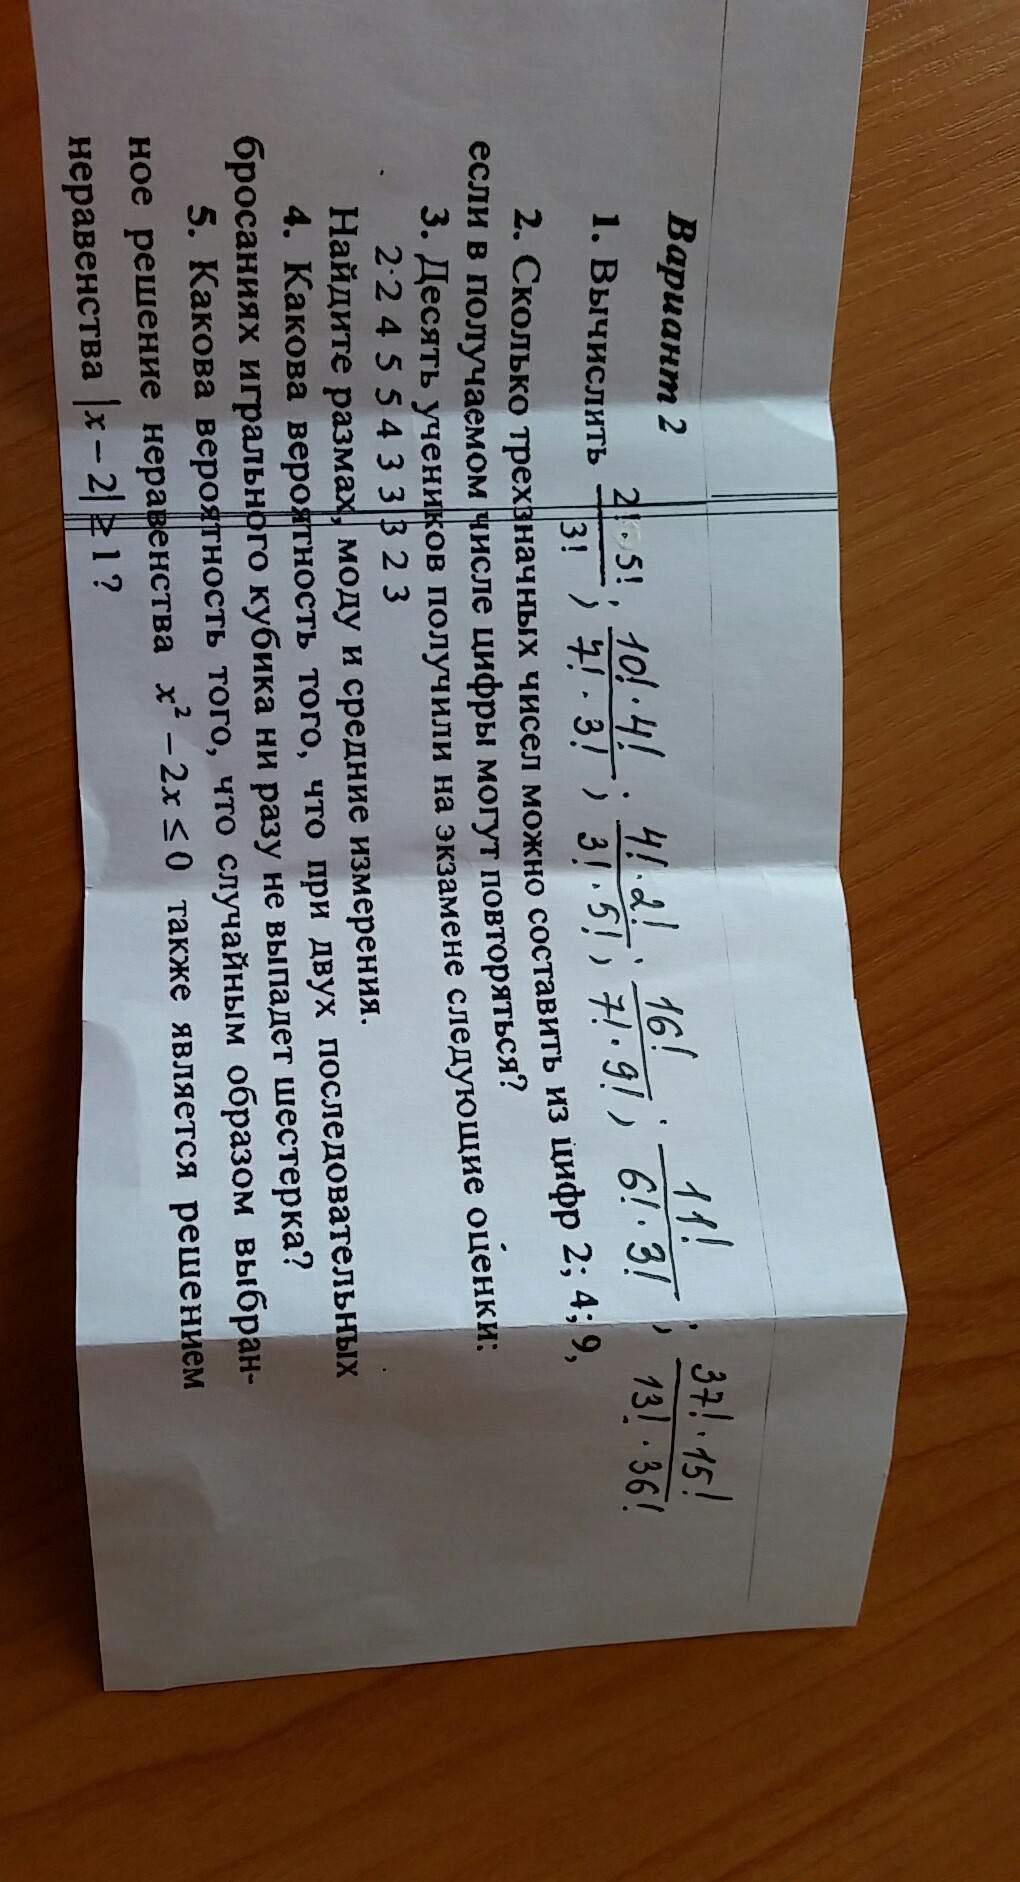 Вариант 2
1. Вычислить $\frac{2! \cdot 5!}{3!}$; $\frac{10! \cdot 4!}{7! \cdot 3!}$; $\frac{4! \cdot 2!}{3! \cdot 5!}$; $\frac{16!}{7! \cdot 9!}$; $\frac{11!}{6! \cdot 3!}$; $\frac{37! \cdot 15!}{13! \cdot 36!}$
2. Сколько трехзначных чисел можно составить из цифр 2; 4; 9,
если в получаемом числе цифры могут повторяться?
3. Десять учеников получили на экзамене следующие оценки:
2·2 4 5 5 4 3 3 3 2 3
Найдите размах, моду и средние измерения.
4. Какова вероятность того, что при двух последовательных
бросаниях игрального кубика ни разу не выпадет шестерка?
5. Какова вероятность того, что случайным образом выбран-
ное решение неравенства $x^2 - 2x \leq 0$ также является решением
неравенства $|x - 2| \geq 1$?